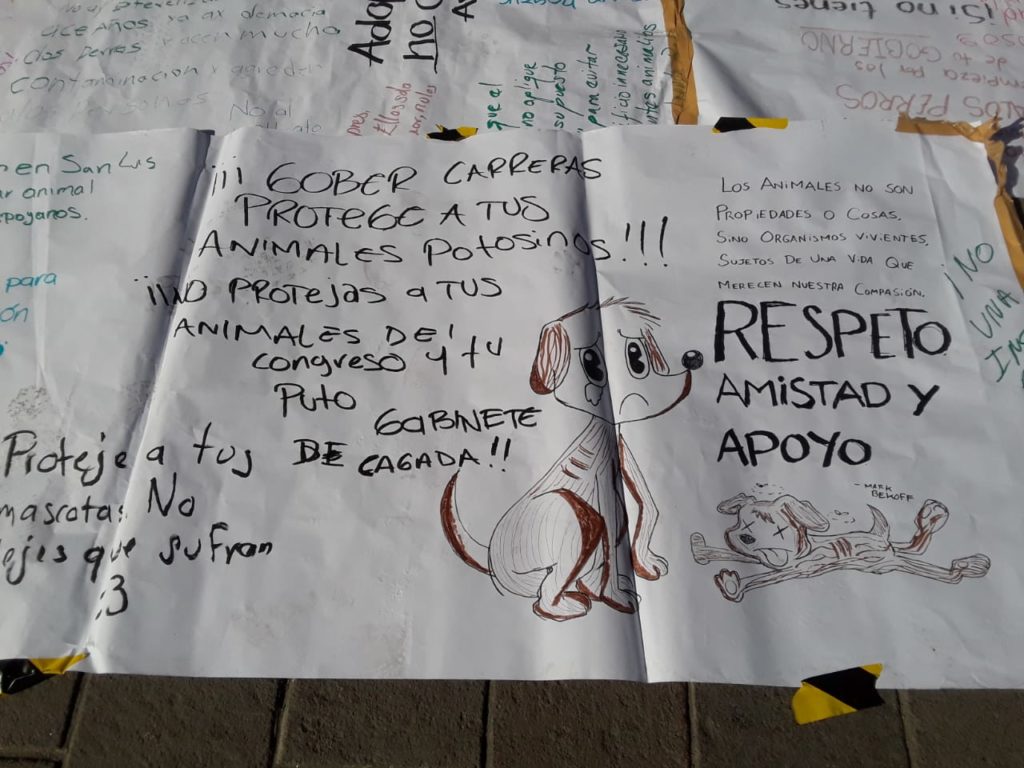 ace años, ya ax demacia
dos perres y acen mucho
contaminacion y agreden
No al
Adop
no c
ques
Ellos da
que el
no aplique
su puesto
para evitar
¡Si no tienes
empieza por los
de tu GOBIERNO
LOS PERROS
en San Luis
ar animal
apoyanos.
para
¡¡¡ GOBER CARRERAS
PROTEGE A TUS
ANIMALES POTOSINOS!!!
¡¡NO PROTEJAS a TUS
ANIMALES DEL
congreso y tu
PUTO
GABINETE
DE CAGADA!!
Proteje a tus
mascotas No
dejes que sufran
:3
LOS ANIMALES NO SON
PROPIEDADES O COSAS,
SINO ORGANISMOS VIVIENTES,
SUJETOS DE UNA VIDA QUE
MERECEN NUESTRA COMPASIÓN,
RESPETO
AMISTAD Y
APOYO
- MARK
BEKOFF
¡NO
UNA